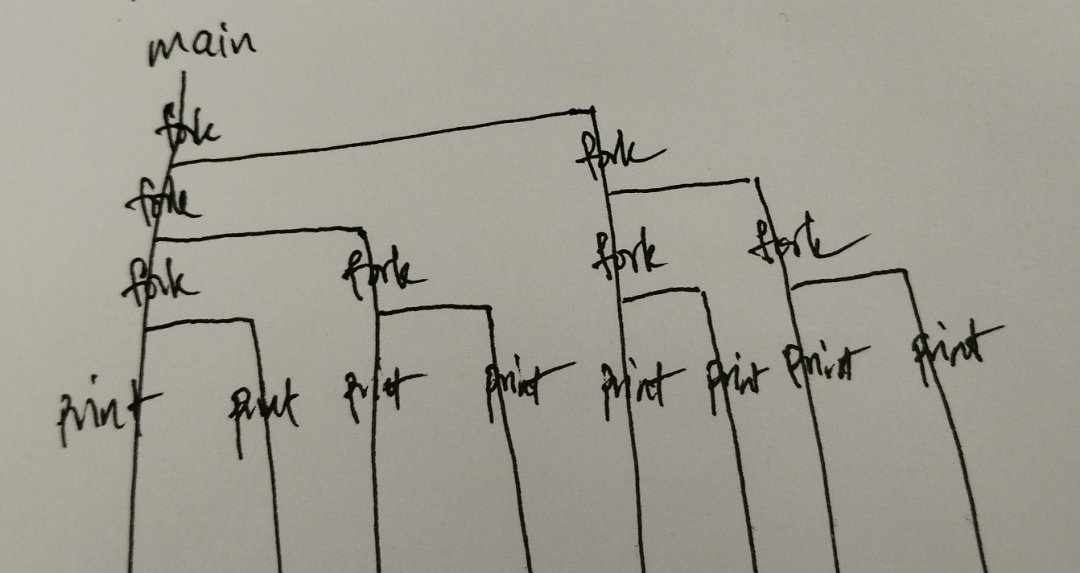 main
fork
fork
fork
fork
fork
fork
fork
print
print
print
print
print
print
print
print